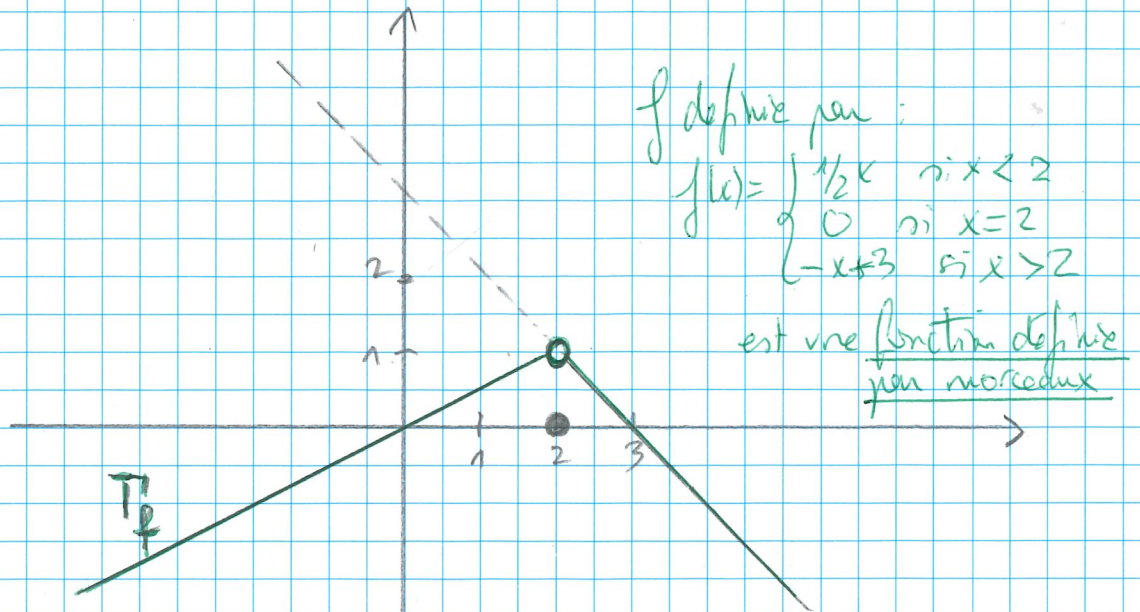 f définie par :
f(x)= { 1/2 x si x < 2
0 si x = 2
-x+3 si x > 2
est une fonction définie
par morceaux
2
1
1 2 3
Γf